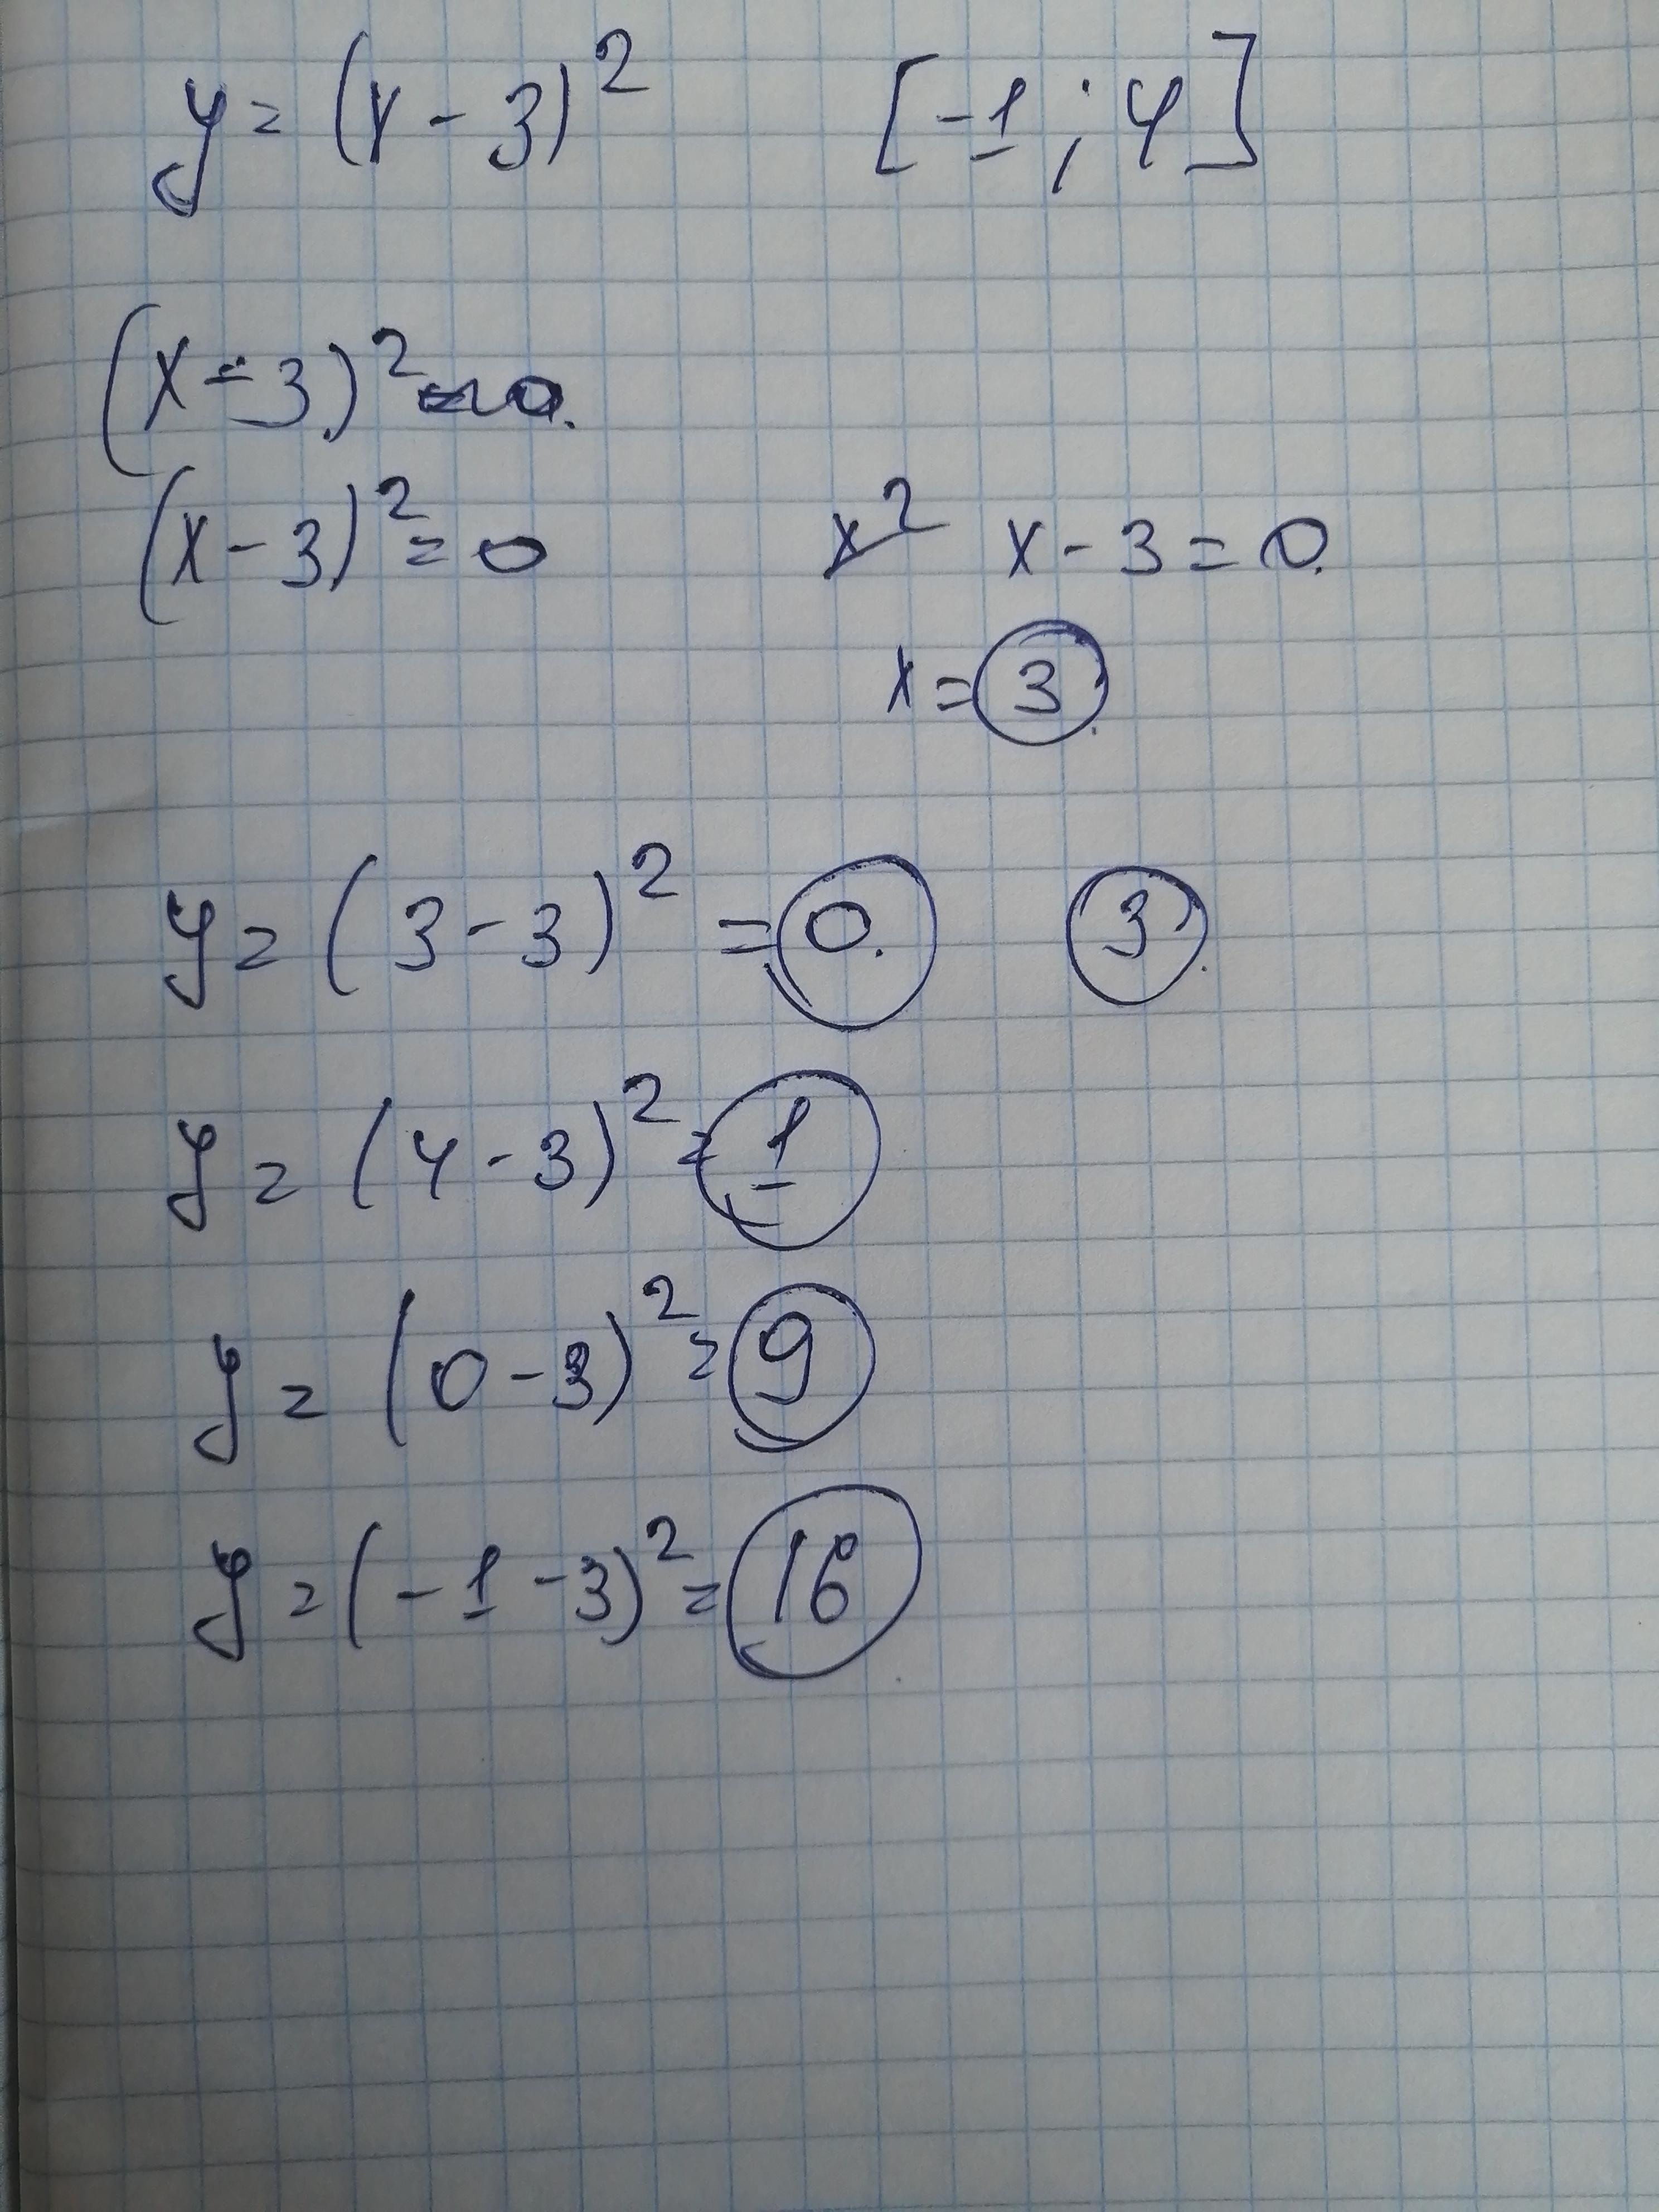 y = (x - 3)² [-1; 4]
(x - 3)² = 0.
(x - 3)² = 0 x² x - 3 = 0.
x = 3.
y = (3 - 3)² = 0. 3.
y = (4 - 3)² = 1
y = (0 - 3)² = 9
y = (-1 - 3)² = 16